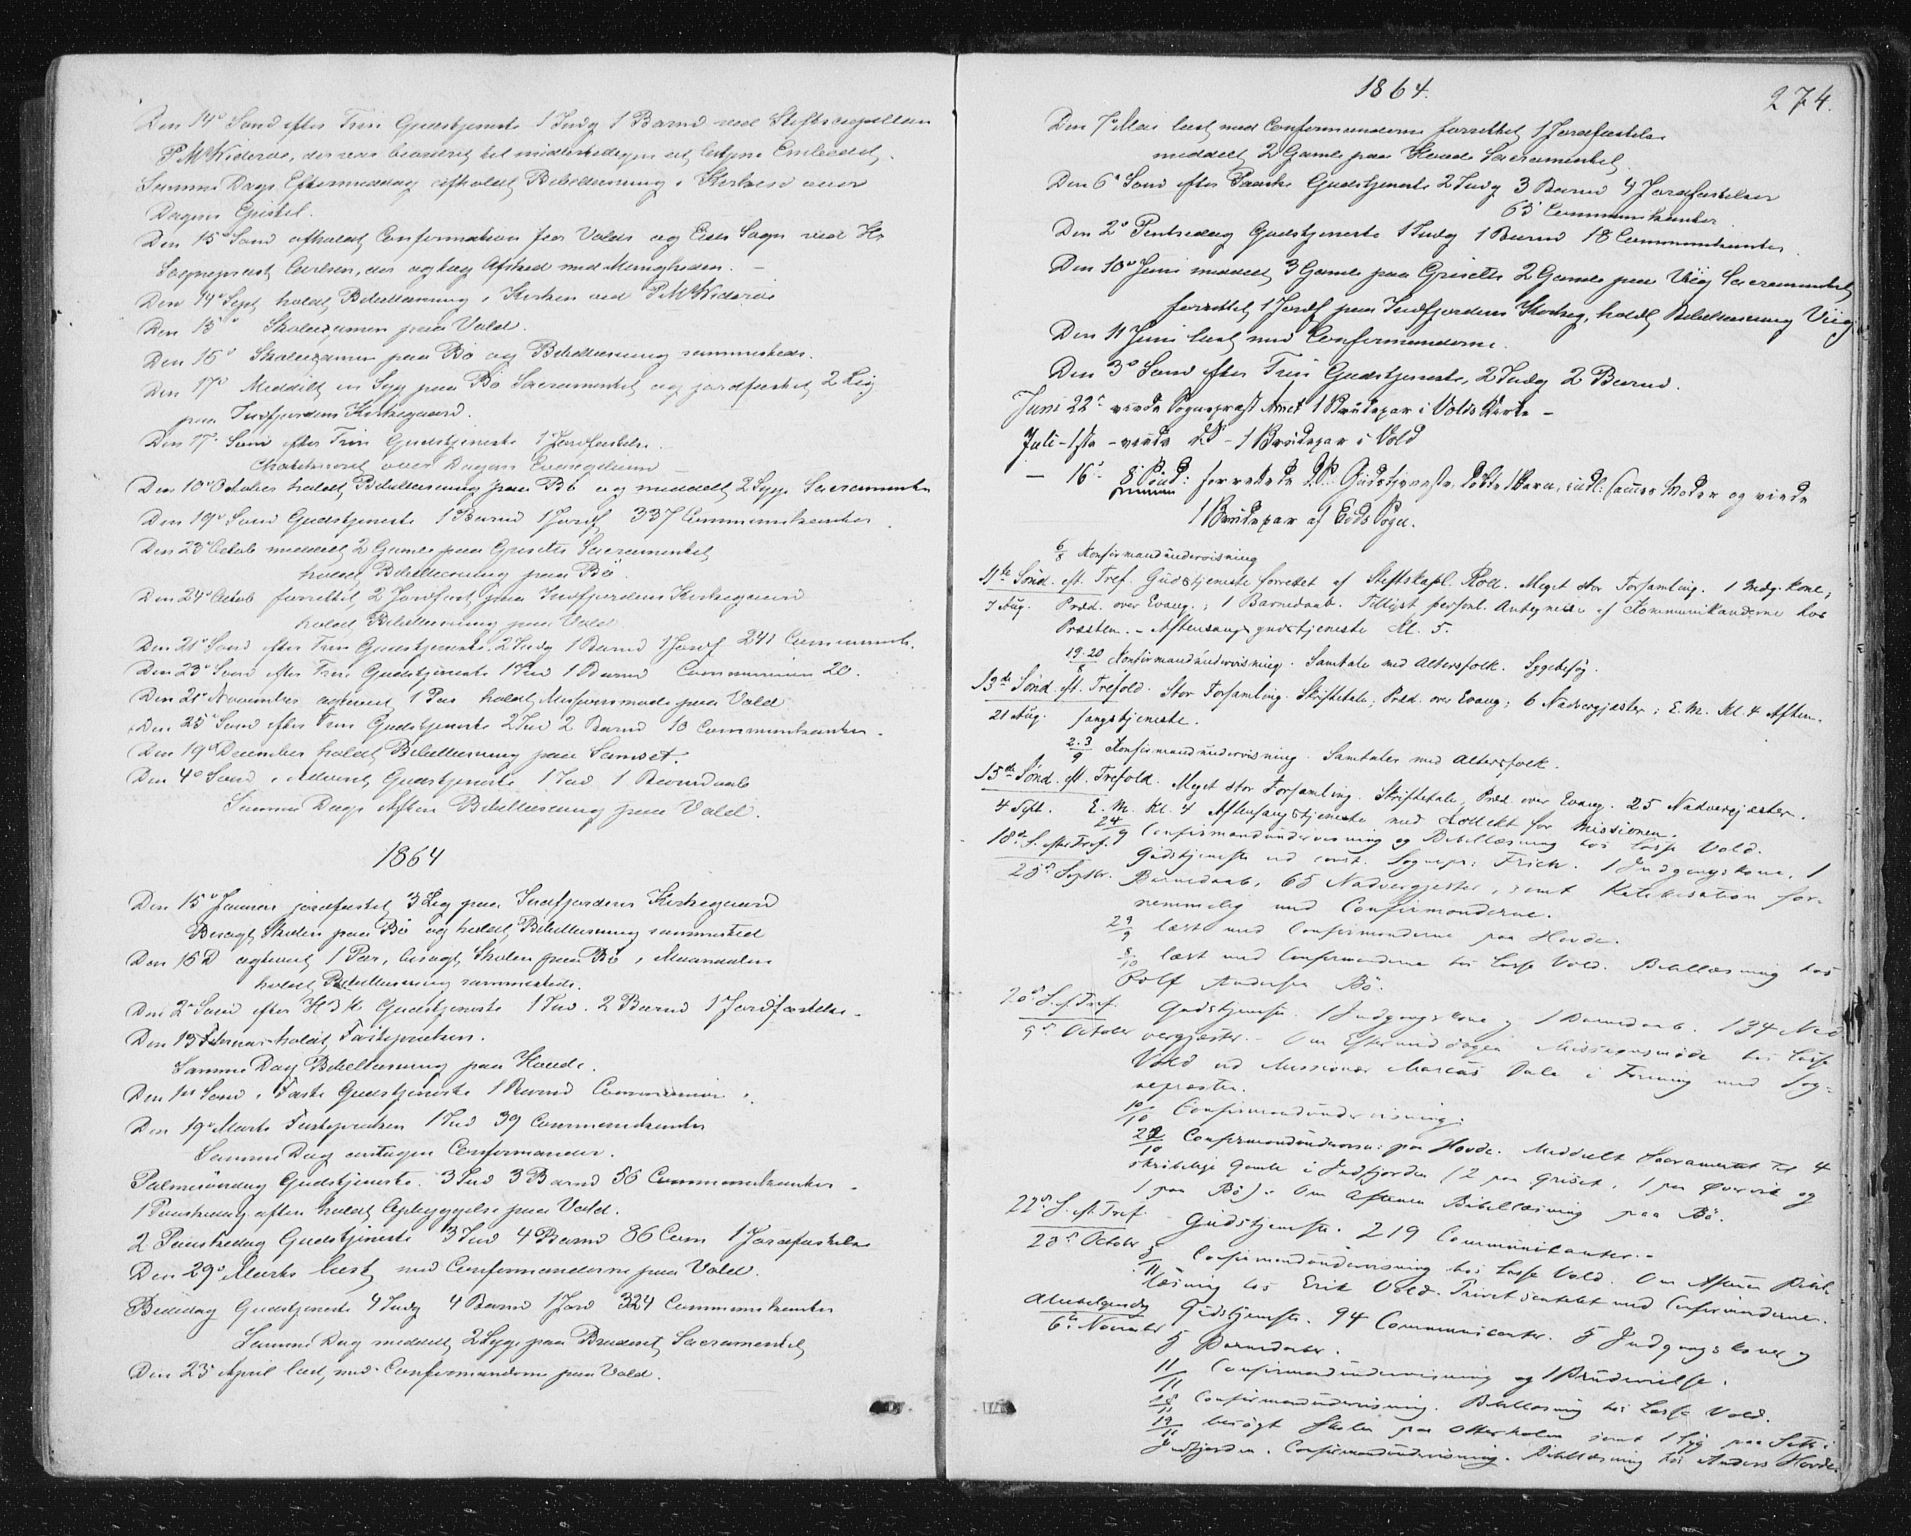 Den 14de Sønd efter Trin Gudstjeneste 1 Indg 1 Barn ved Stiftscapellan
P. M. Widerøe, der var beordret til midlertidigen at betjene Embedet.
Samme Dags Eftermiddag afholdt Bibellæsning i Kirken over
Dagens Epistel.
Den 15de Sønd afholdt Confirmation for Volds og Eids Sogn ved Hr
Sogneprest Carlsen, der og tog Afsked med Menigheden. —
Den 14de Sept holdt Bibellæsning i Kirken ved P. M. Widerøe
Den 15de Skoleexamen paa Vold.
Den 16de Skoleexamen paa Bø og Bibellæsning sammesteds.
Den 17de Meddelt en Syg paa Bø Sacramentet og jordfæstet 2 Lig
paa Indfjordens Kirkegaard.
Den 17. Sønd efter Trin Gudstjeneste 1 Jordfæstelse
Chatekiseret over Dagens Evangelium
Den 10de October holdt Bibellæsning paa Bø og meddelt 2 Syge Sacramentet
Den 19de Sønd Gudstjeneste 1 Barn 1 Jordf 337 Communikanter
Den 23de Octob meddelt 2 Gamle paa Grisetts Sacramentet
holdt Bibellæsning paa Bø.
Den 24de Octob forrettet 2 Jordfæst. paa Indfjordens Kirkegaard
holdt Bibellæsning paa Vold
Den 21de Sønd efter Trin Gudstjeneste 2 Indg 1 Barn 1 Jordf 241 Communik.
Den 23de Sønd efter Trin Gudstjeneste 1 Ind 1 Barn Communion 20.
Den 21de November ægteviet 1 Par holdt Missionsmøde paa Vold
Den 25de Sønd efter Trin Gudstjeneste 2 Ind 2 Barn 10 Communikanter.
Den 19de December holdt Bibellæsning paa
Den 4de Sønd i Advent Gudstjeneste 1 Ind 1 Barnedaab
Samme Dags Aften Bibellæsning paa Vold.
1864
Den 15de Januar jordfæstet 3 Lig paa Indfjordens Kirkegaard
Besøgt Skolen paa Bø og holdt Bibellæsning sammested
Den 16 D ægteviet 1 Par, besøgt Skolen paa Bø i Maandalen
holdt Bibellæsning sammesteds.
Den 2de Sønd efter H 3 K Gudstjeneste 1 Ind. 2 Barn 1 Jordfæstelse.
Den 13 Februar holdt Fasteprædiken.
Samme Dag Bibellæsning paa Hovde.
Den 1ste Sønd i Faste Gudstjeneste 1 Barn Communion
Den 19de Marts Fasteprædiken 1 Ind 39 Communikanter
Samme Dag antagen Confirmander.
Palmesøndag Gudstjeneste. 3 Ind 3 Barn 56 Communikanter.
1 Paaskedag aften holdt Opbyggelse paa Vold.
2 Paaskedag Gudstjeneste 3 Ind 4 Barn 86 Com 1 Jordfæstelse
Den 29de Marts læst med Confirmanderne paa Vold.
Bededag Gudstjeneste 4 Indg 4 Barn 1 Jord 324 Communikanter
Samme Dag meddelt 2 Syge paa Sacramentet
Den 23de April læst med Confirmanderne paa Vold.
1864. 274.
Den 7de Mai læst med Confirmanderne forrettet 1 Jordfæstelse
meddelt 2 Gamle paa Hovde Sacramentet.
Den 6te Sønd efter Paaske Gudstjeneste 2 Indg 3 Barn 4 Jordfæstelser
65 Communikanter.
Den 2den Pintsedag Gudstjeneste 1 Indg 1 Barn 18 Communikanter
Den 10de Juni meddelt 3 Gamle paa Grisetts 2 Gamle paa Viig Sacramentet
forrettet 1 Jordf paa Indfjordens Kirkeg, holdt Bibellæsning Viig
Den 11 Juni læst med Confirmanderne.
Den 3de Sønd efter Trin Gudstjeneste, 2 Indg 2 Barn.
Juni 22de viede Sognepræst 1 Brudepar i Volds Kirke —
Juli – 1ste – viede do – 1 Brudepar i Vold
— 16de 8. Sønd: forrettede Gudstjeneste, døbte 1 Barn, indl. sammes Moder og viede
1 Brudepar af Eids Sogn.
6/8 Konfirmandundervisning
11te Sønd. eft. Tref. Gudstjeneste forrettet af Stiftskapl. Roll. Meget stor Forsamling. 1 Indg. kone;
7 Aug. Præd. over Evang.; 1 Barnedaab. Tillyst personl. Antegnelse af Kommunikanderne hos
Præsten. – Aftensangsgudstjeneste Kl. 5.
19.20/8 Konfirmandundervisning. Samtale med Altersfolk. Sygebesøg.
13de Sønd. eft. Trefold. Stor Forsamling. Skriftetale, Præd. over Evang; 6 Nadvergjæster; E. M. Kl. 4 Aften-
21 Aug. sangstjeneste.
2.3/9 Konfirmandundervisning. Samtaler med Altersfolk.
15de Sønd. eft. Trefold. Meget stor Forsamling. Skriftetale, Præd. over Evang. 25 Nadvergjæster.
4 Sept. E. M. Kl. 4 Aftensangstjeneste med Kollekt for Missionen.
24/9 Confirmandundervisning og Bibellæsning hos Lasse Vold.
18de S. efter Tref. Gudstjeneste ved const. Sognepr: Frich. 1 Indgangskone, 1
25de Septbr. Barnedaab, 65 Nadvergjester, samt Katekisation for-
nemmelig med Confirmanderne.
29/9 læst med Confirmanderne paa Hovde.
8/10 læst med Confirmanderne hos Lasse Vold. Bibellæsning hos
Rolf Andersen Bø.
20de S. e. Tref. Gudstjeneste. 1 Indgangskone og 1 Barnedaab. 134 Nad
9de October vergjæster. – Om Eftermiddagen Missionsmøde hos Lasse
Vold ved Missionær Marcus Dale i Forening med Sog-
nepræsten.
10/10 Confirmandundervisning.
22/10 Confirmandunderv: paa Hovde. Meddelt Sacramentet til 4
skrøbelige Gamle i Indfjorden (2 paa Griset, 1 paa Øvervik og
1 paa Bø). Om Aftenen Bibellæsning paa Bø.
22de S. eft. Tref. Gudstjeneste. 219 Communikanter. –
23de October
5/11 Confirmandundervisning hos Lasse Vold. Om Aftenen Bibel-
læsning hos Erik Vold. Privat samtalet med Confirmanderne.
Allehelgensdag Gudstjeneste. 94 Communicanter. 5 Indgangskoner og
6te November 5 Barnedaaber.
11/11 Confirmandundervisning og 1 Brudevielse.
18/11 Confirmandundervisning. Bibellæsning hos Lasse Vold.
19/11 besøgt Skolen paa Otterholm samt 1 Syg paa Sæter i
Indfjorden. Confirmandundervisning. Bibellæsning hos Anders Hovde.